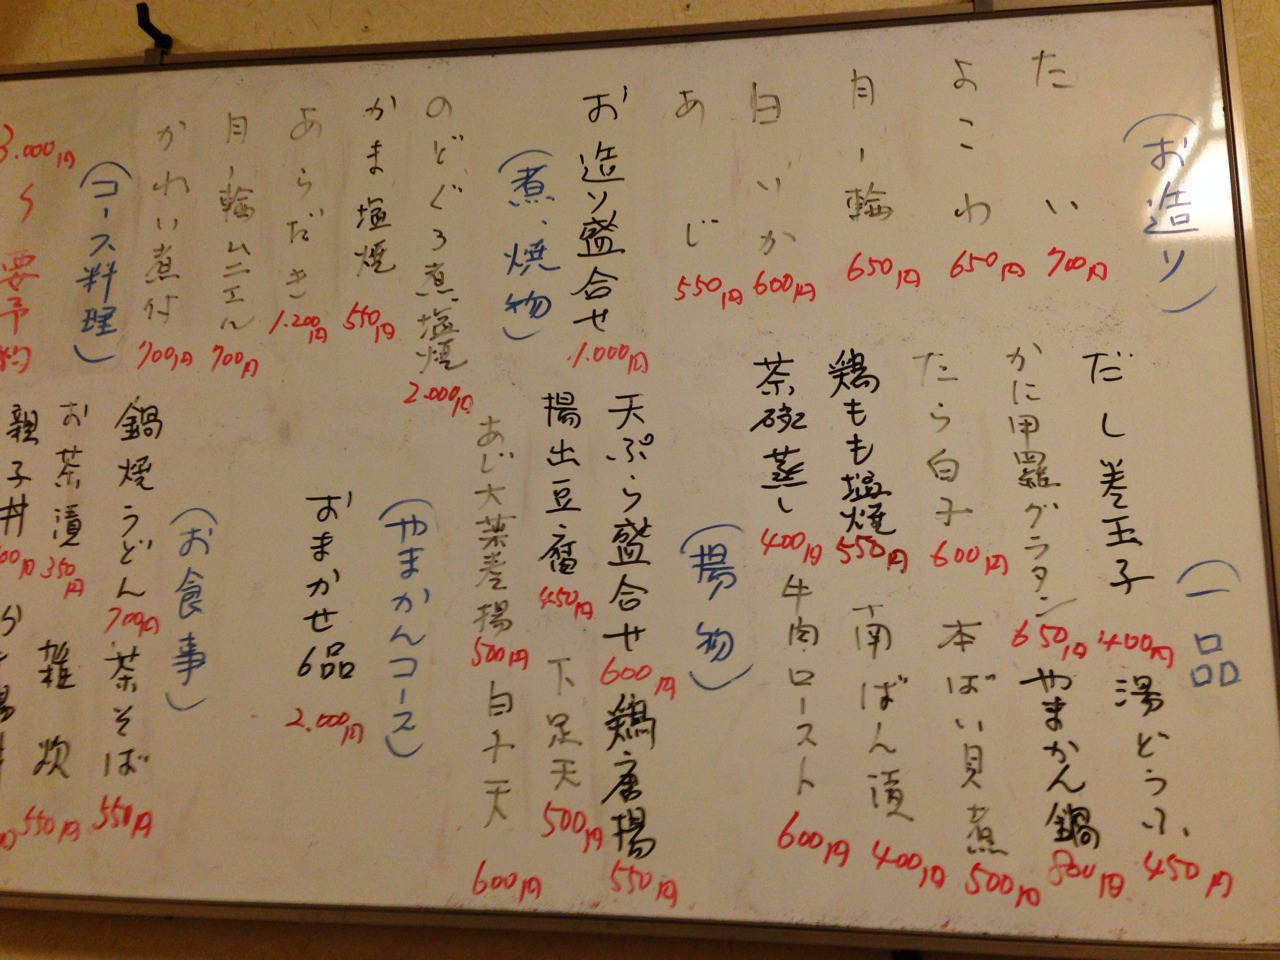 (お造り)
たい 700円
よこわ 650円
月一輪 650円
白いか 600円
あじ 550円
お造り盛合せ 1.000円
(煮、焼物)
のどぐろ煮、塩焼 2.000円
かま塩焼 550円
あらだき 1.200円
月一輪ムニエル 700円
かれい煮付 700円
(コース料理)
3.000円〜要予約
(一品)
だし巻玉子 400円
湯どうふ 450円
かに甲羅グラタン 650円
やまかん鍋 800円
たら白子 600円
本ばい貝煮 500円
鶏もも塩焼 550円
南ばん漬 400円
茶碗蒸し 400円
牛肉ロースト 600円
(揚物)
天ぷら盛合せ 600円
鶏唐揚 550円
揚出豆腐 450円
下足天 500円
あじ大葉巻揚 500円
白子天 600円
(やまかんコース)
おまかせ6品 2.000円
(お食事)
鍋焼うどん 700円
茶そば 550円
お茶漬 350円
雑炊 550円
親子丼